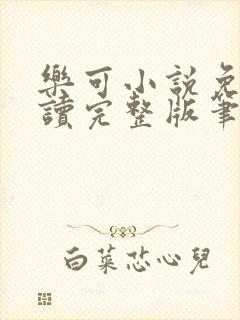 樂可小說免
讀完整版筆
白菜芯心兒